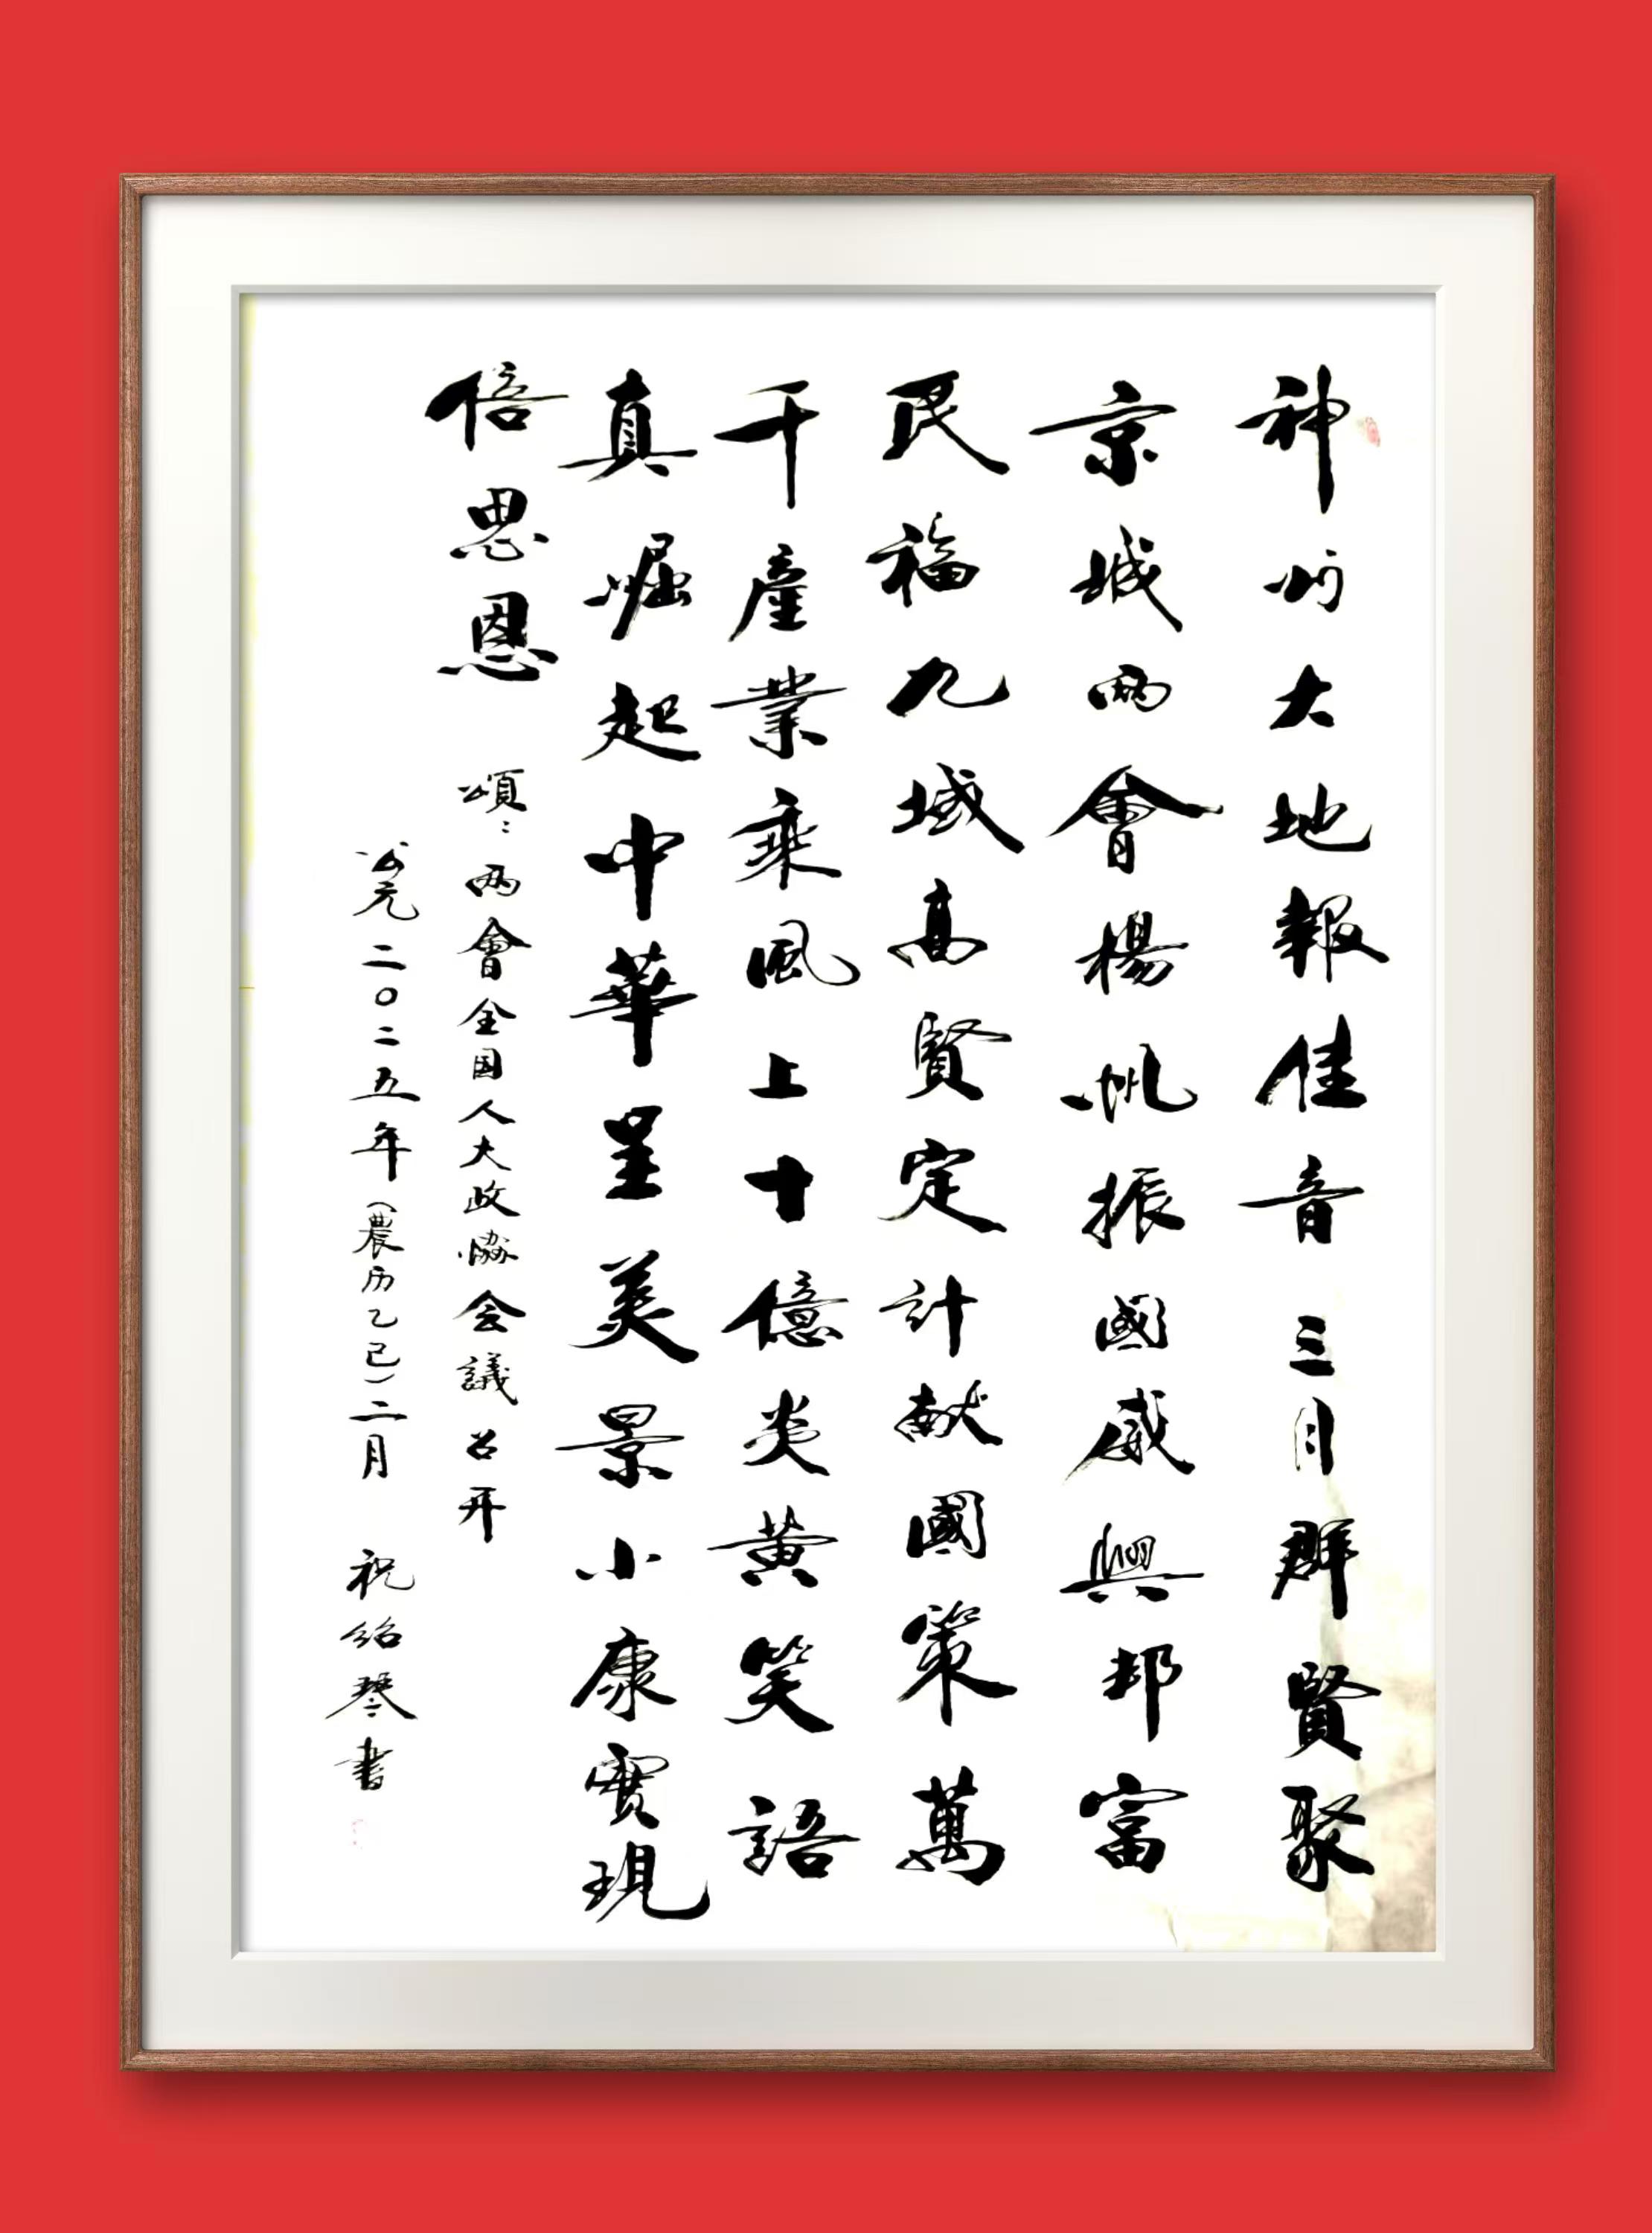 神州大地報佳音三月群賢聚
京城兩會楊帆振國威興邦富
民福九域高賢定計献國策萬
千產業乘風上十億炎黄笑語
真崛起中華呈美景小康實現
倍思恩 頌:两會全国人大政協会議召开
公元二〇二五年(農历乙巳)二月 祝绍琴書